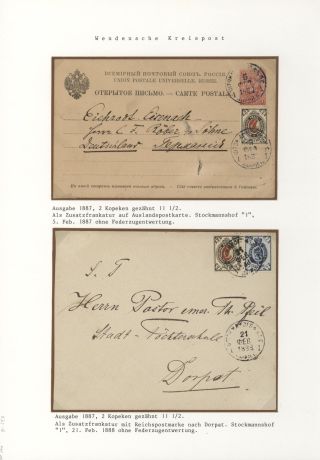 Wendensche Kreispost
ВСЕМІРНЫЙ ПОЧТОВЫЙ СОЮЗЪ. РОССІЯ.
UNION POSTALE UNIVERSELLE. RUSSIE.
ОТКРЫТОЕ ПИСЬМО. — CARTE POSTALE
Eisenach
Herrn C. F. Röder & Söhne
Deutschland Германія
Ausgabe 1887, 2 Kopeken gezähnt 11 1/2.
Als Zusatzfrankatur auf Auslandspostkarte. Stockmannshof "1",
5. Feb. 1887 ohne Federzugentwertung.
S. T
Herrn Pastor emer. Th. Pfeil
Stadt-Töchterschule
Dorpat.
21
ФЕВ
1888
Ausgabe 1887, 2 Kopeken gezähnt 11 1/2.
Als Zusatzfrankatur mit Reichspostmarke nach Dorpat. Stockmannshof
"1", 21. Feb. 1888 ohne Federzugentwertung.